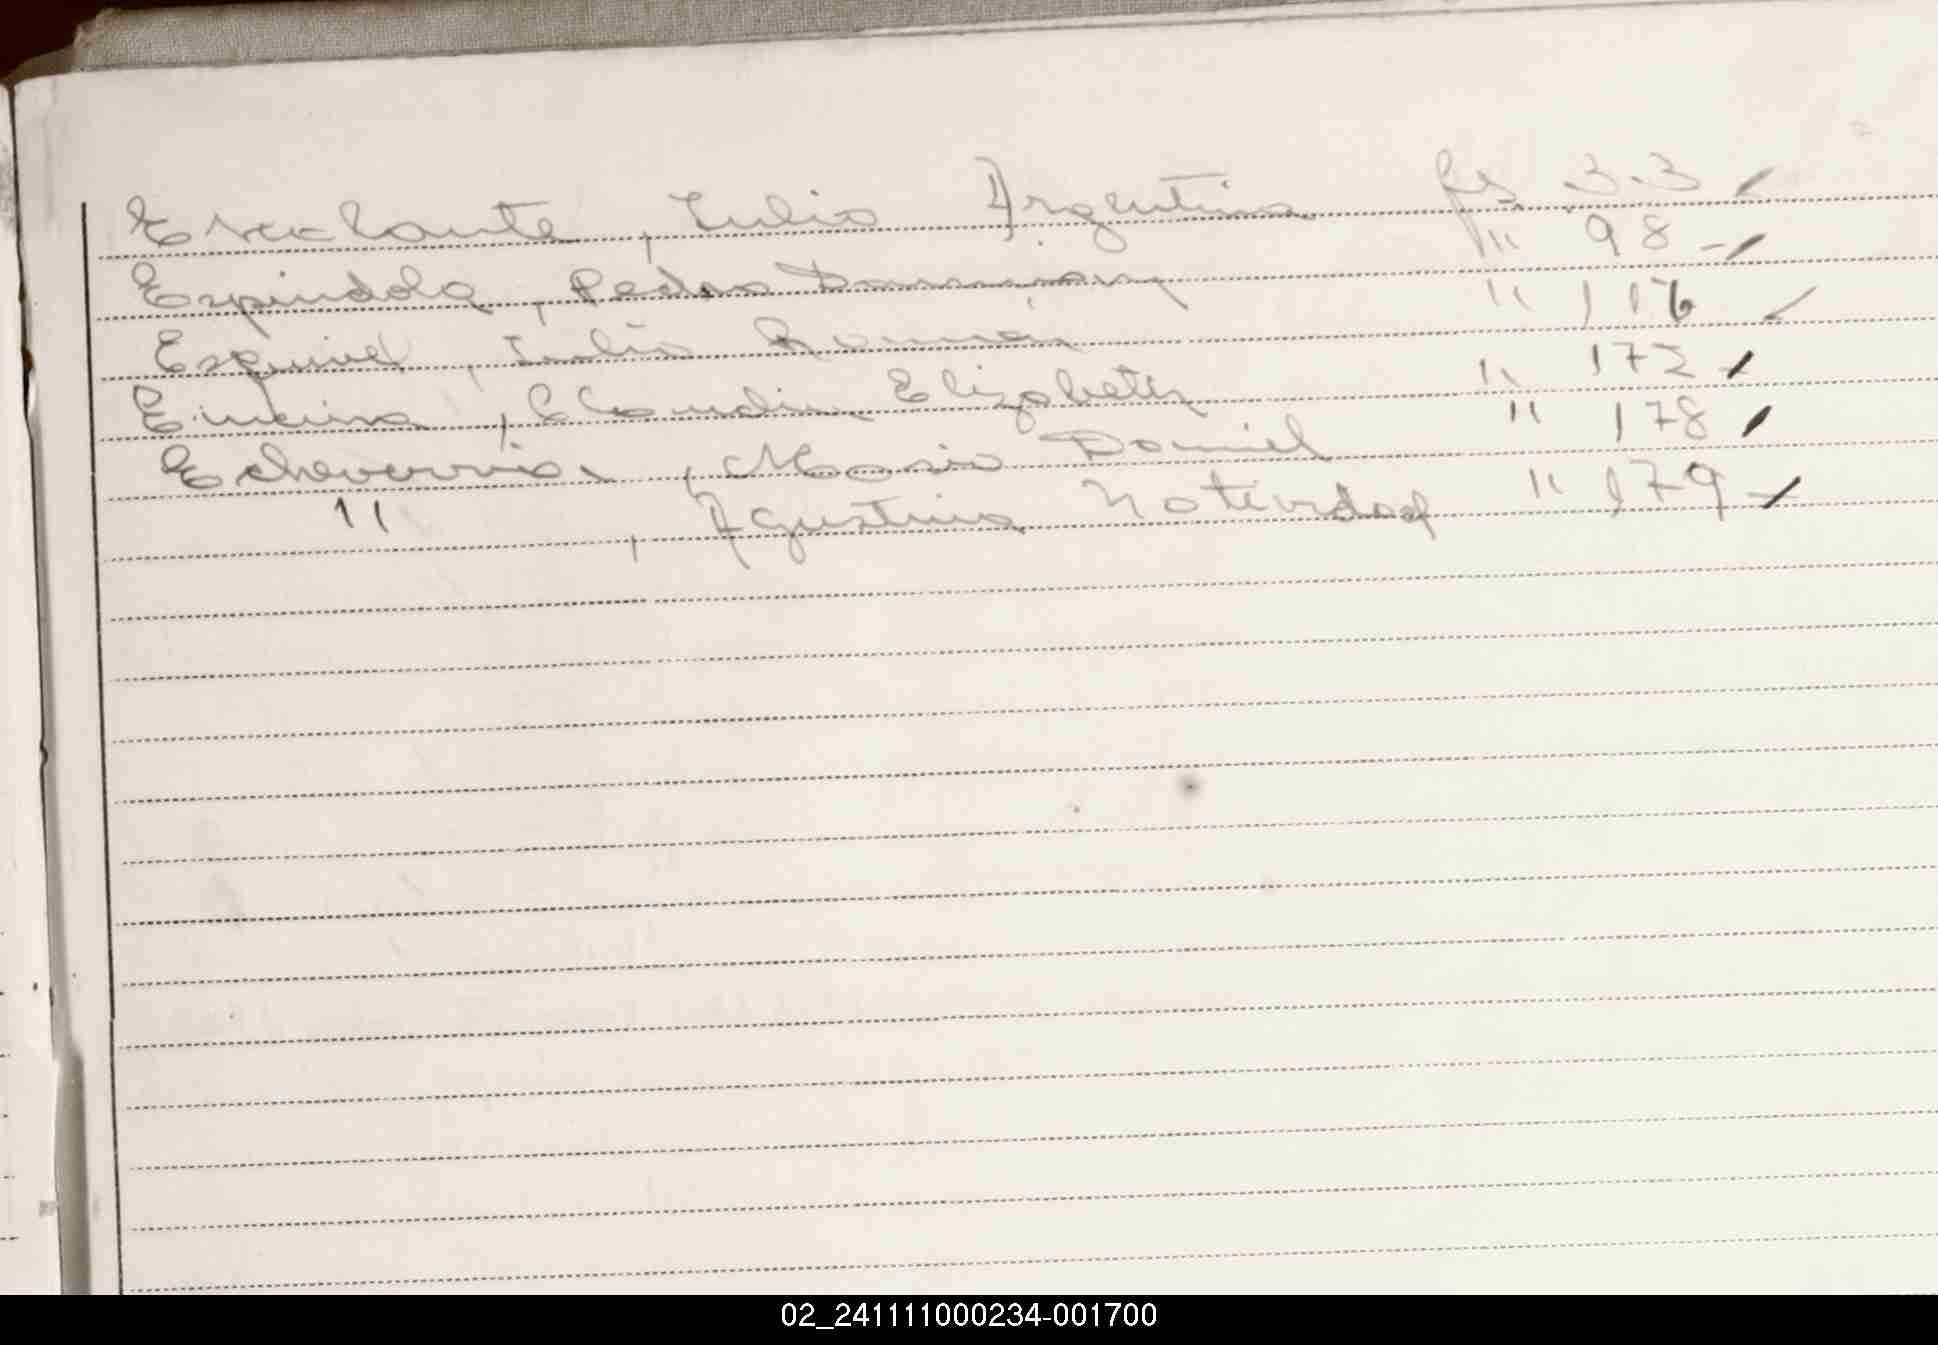 Escalante, Julio Argentino fs 33
Espindola, Pedro Damian " 98 -
Esquivel, Julio Román " 116
Encina, Claudia Elizabeth " 172
Echeverria, Mario Daniel " 178
" , Agustina Natividad " 179
02_241111000234-001700